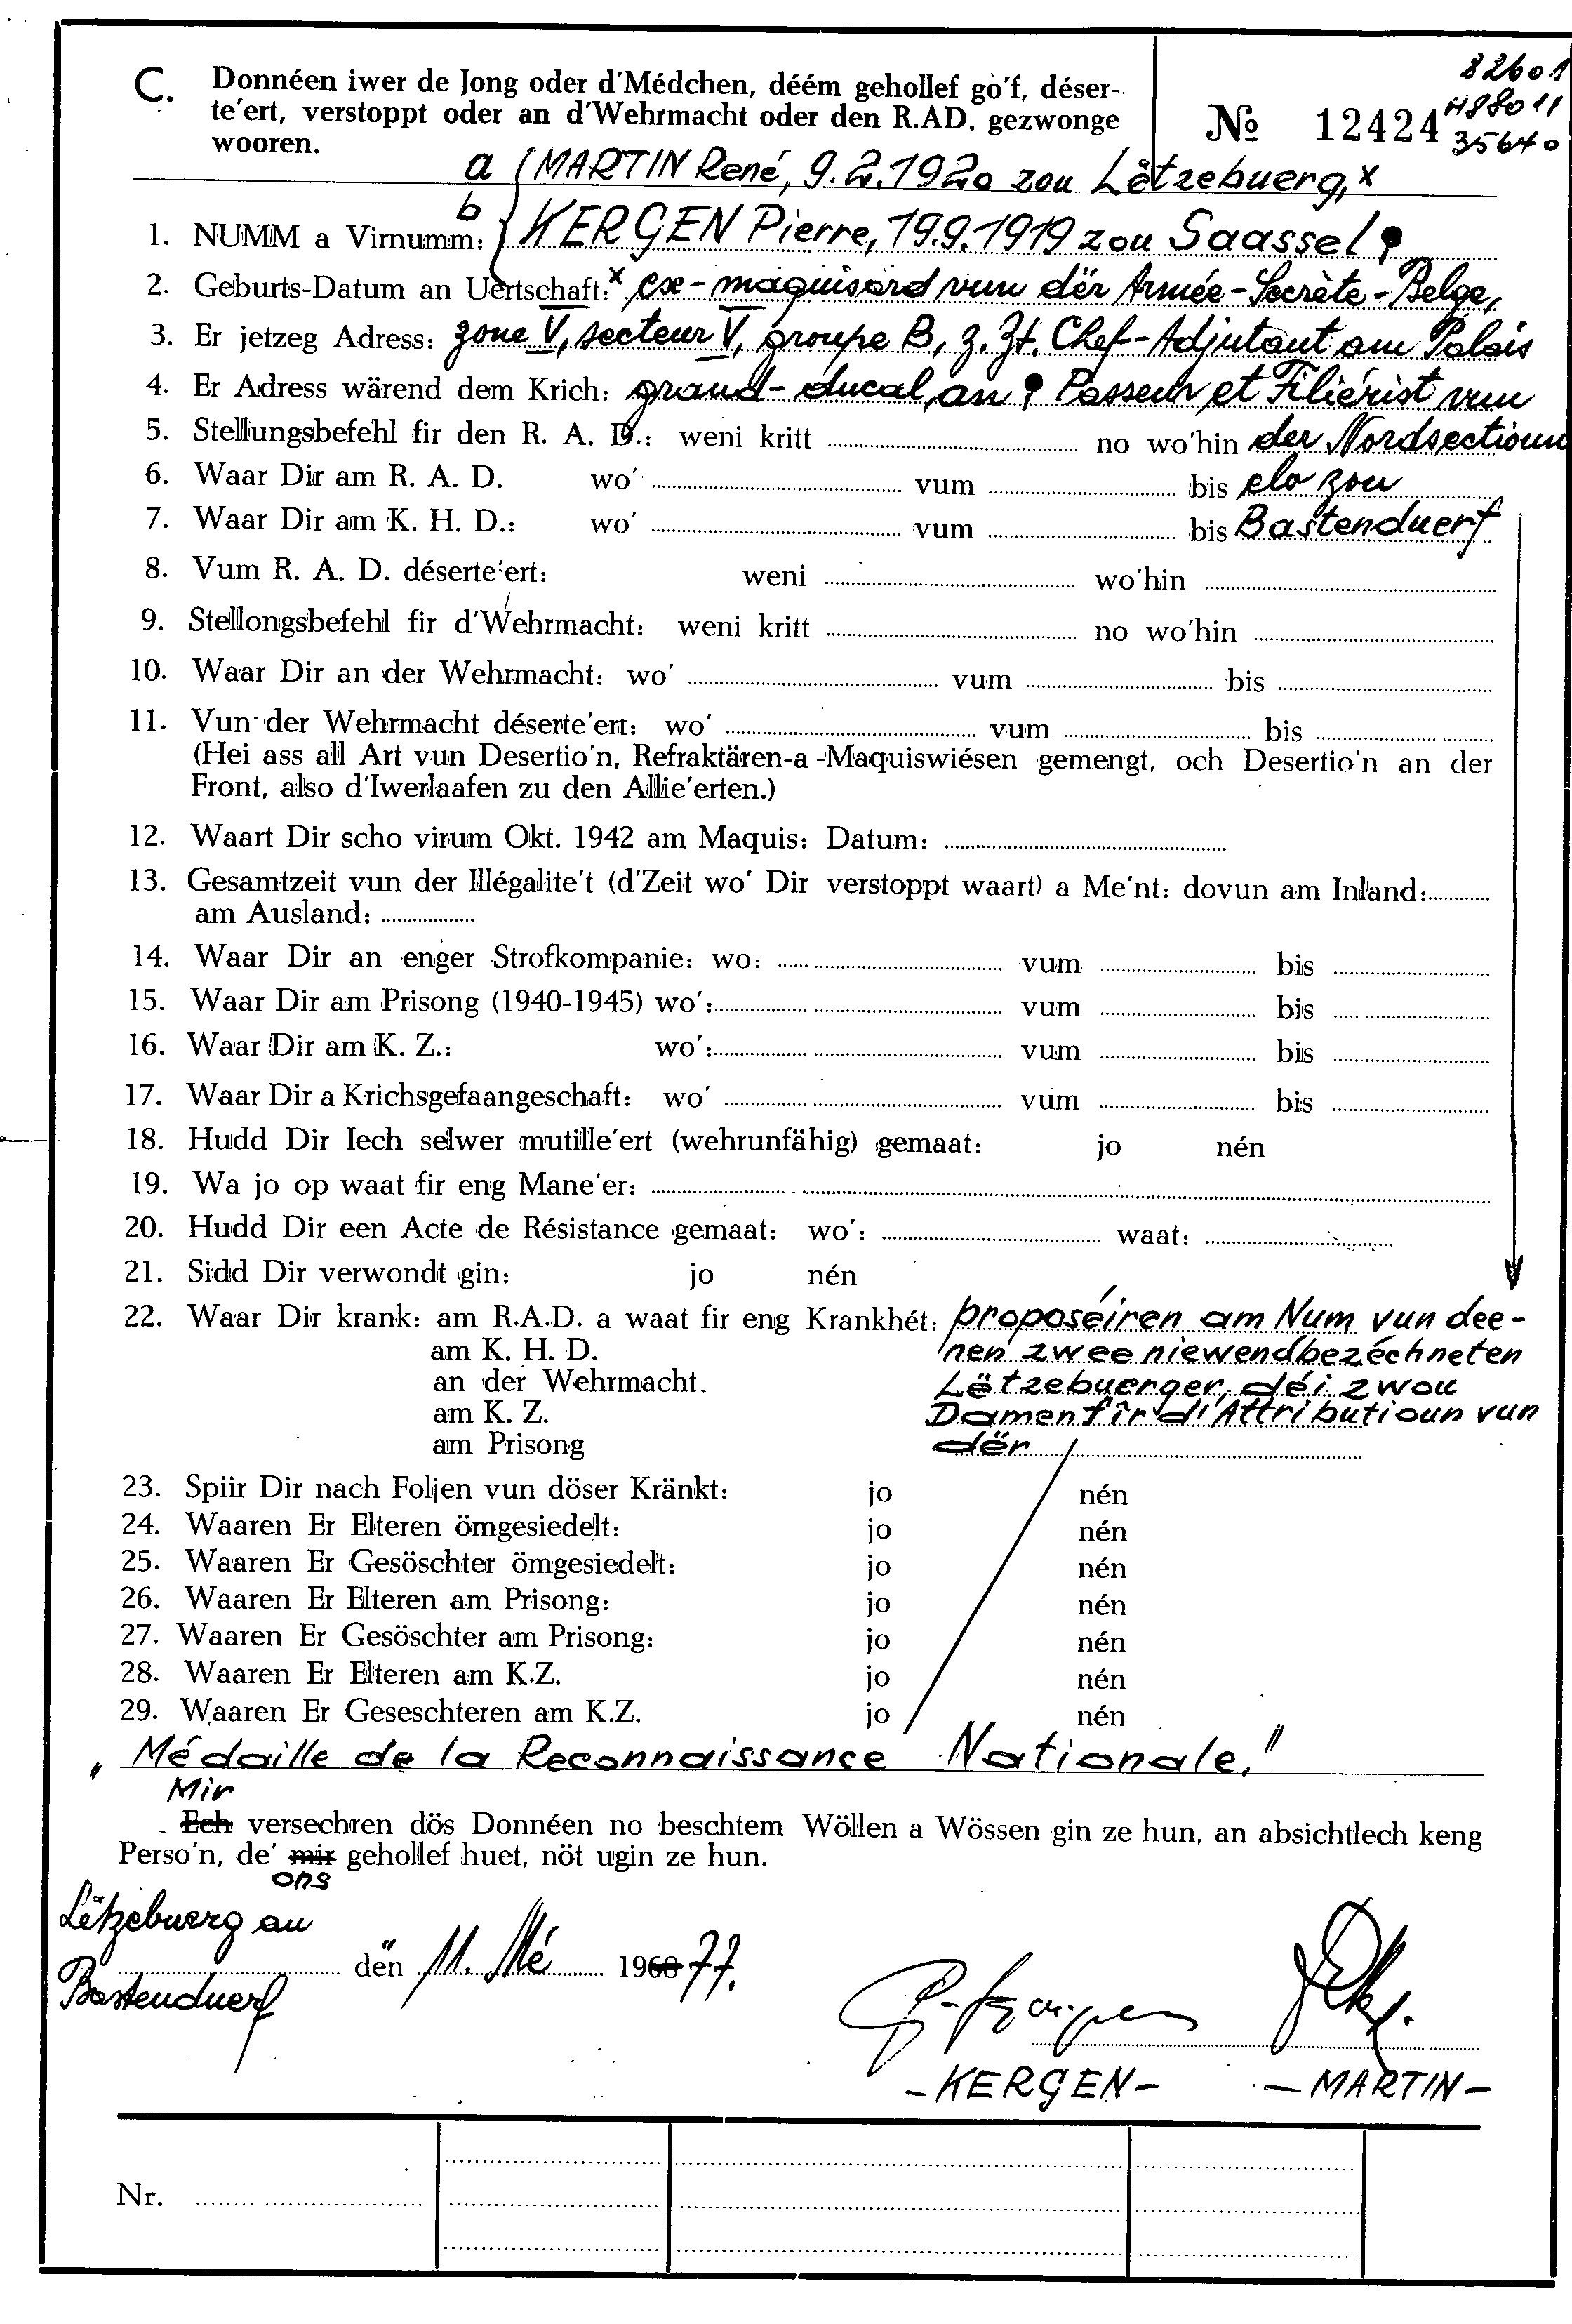 C. Donnéen iwer de Jong oder d'Médchen, déém gehollef go'f, déser-
te'ert, verstoppt oder an d'Wehrmacht oder den R.AD. gezwonge
wooren.
№ 12424
32601
35640
a MARTIN René, 9.2.1920 zou Lëtzebuerg,x
b KERGEN Pierre, 19.9.1919 zou Saassel
1. NUMM a Virnumm:
2. Geburts-Datum an Uertschaft: x ex-maquisard vun dër Armée-Secrète-Belge,
3. Er jetzeg Adress: zone V, secteur V, groupe B, z.Zt. Chef-Adjutant am Palais
4. Er Adress wärend dem Krich: grand-ducal, an Passeur et Filiérist vun
5. Stellungsbefehl fir den R. A. D.: weni kritt no wo'hin der Nordsectioun
6. Waar Dir am R. A. D. wo' vum bis elo zou
7. Waar Dir am K. H. D.: wo' vum bis Bastenduerf
8. Vum R. A. D. déserte'ert: weni wo'hin
9. Stellongsbefehl fir d'Wehrmacht: weni kritt no wo'hin
10. Waar Dir an der Wehrmacht: wo' vum bis
11. Vun der Wehrmacht déserte'ert: wo' vum bis
(Hei ass all Art vun Desertio'n, Refraktären-a-Maquiswiésen gemengt, och Desertio'n an der
Front, also d'Iwerlaafen zu den Allie'erten.)
12. Waart Dir scho virum Okt. 1942 am Maquis: Datum:
13. Gesamtzeit vun der Illégalite't (d'Zeit wo' Dir verstoppt waart) a Me'nt: dovun am Inland:
am Ausland:
14. Waar Dir an enger Strofkompanie: wo: vum bis
15. Waar Dir am Prisong (1940-1945) wo': vum bis
16. Waar Dir am K. Z.: wo': vum bis
17. Waar Dir a Krichsgefaangeschaft: wo' vum bis
18. Hudd Dir Iech selwer mutille'ert (wehrunfähig) gemaat: jo nén
19. Wa jo op waat fir eng Mane'er:
20. Hudd Dir een Acte de Résistance gemaat: wo': waat:
21. Sidd Dir verwondt gin: jo nén
22. Waar Dir krank: am R.A.D. a waat fir eng Krankhét: proposéiren am Num vun dee-
am K. H. D. nen zwee niewendbezéchneten
an der Wehrmacht. Lëtzebuerger, déi zwou
am K. Z. Damen fir d'Attributioun vun
am Prisong dër
23. Spiir Dir nach Foljen vun döser Kränkt: jo nén
24. Waaren Er Elteren ömgesiedelt: jo nén
25. Waaren Er Gesöschter ömgesiedelt: jo nén
26. Waaren Er Elteren am Prisong: jo nén
27. Waaren Er Gesöschter am Prisong: jo nén
28. Waaren Er Elteren am K.Z. jo nén
29. Waaren Er Geseschteren am K.Z. jo nén
„Médaille de la Reconnaissance Nationale."
Mir
Ech versechren dös Donnéen no beschtem Wöllen a Wössen gin ze hun, an absichtlech keng
Perso'n, de' mir gehollef huet, nöt ugin ze hun.
ons
Lëtzebuerg an
Bastenduerf den 11. Mé 1968 77.
-KERGEN- -MARTIN-
Nr.